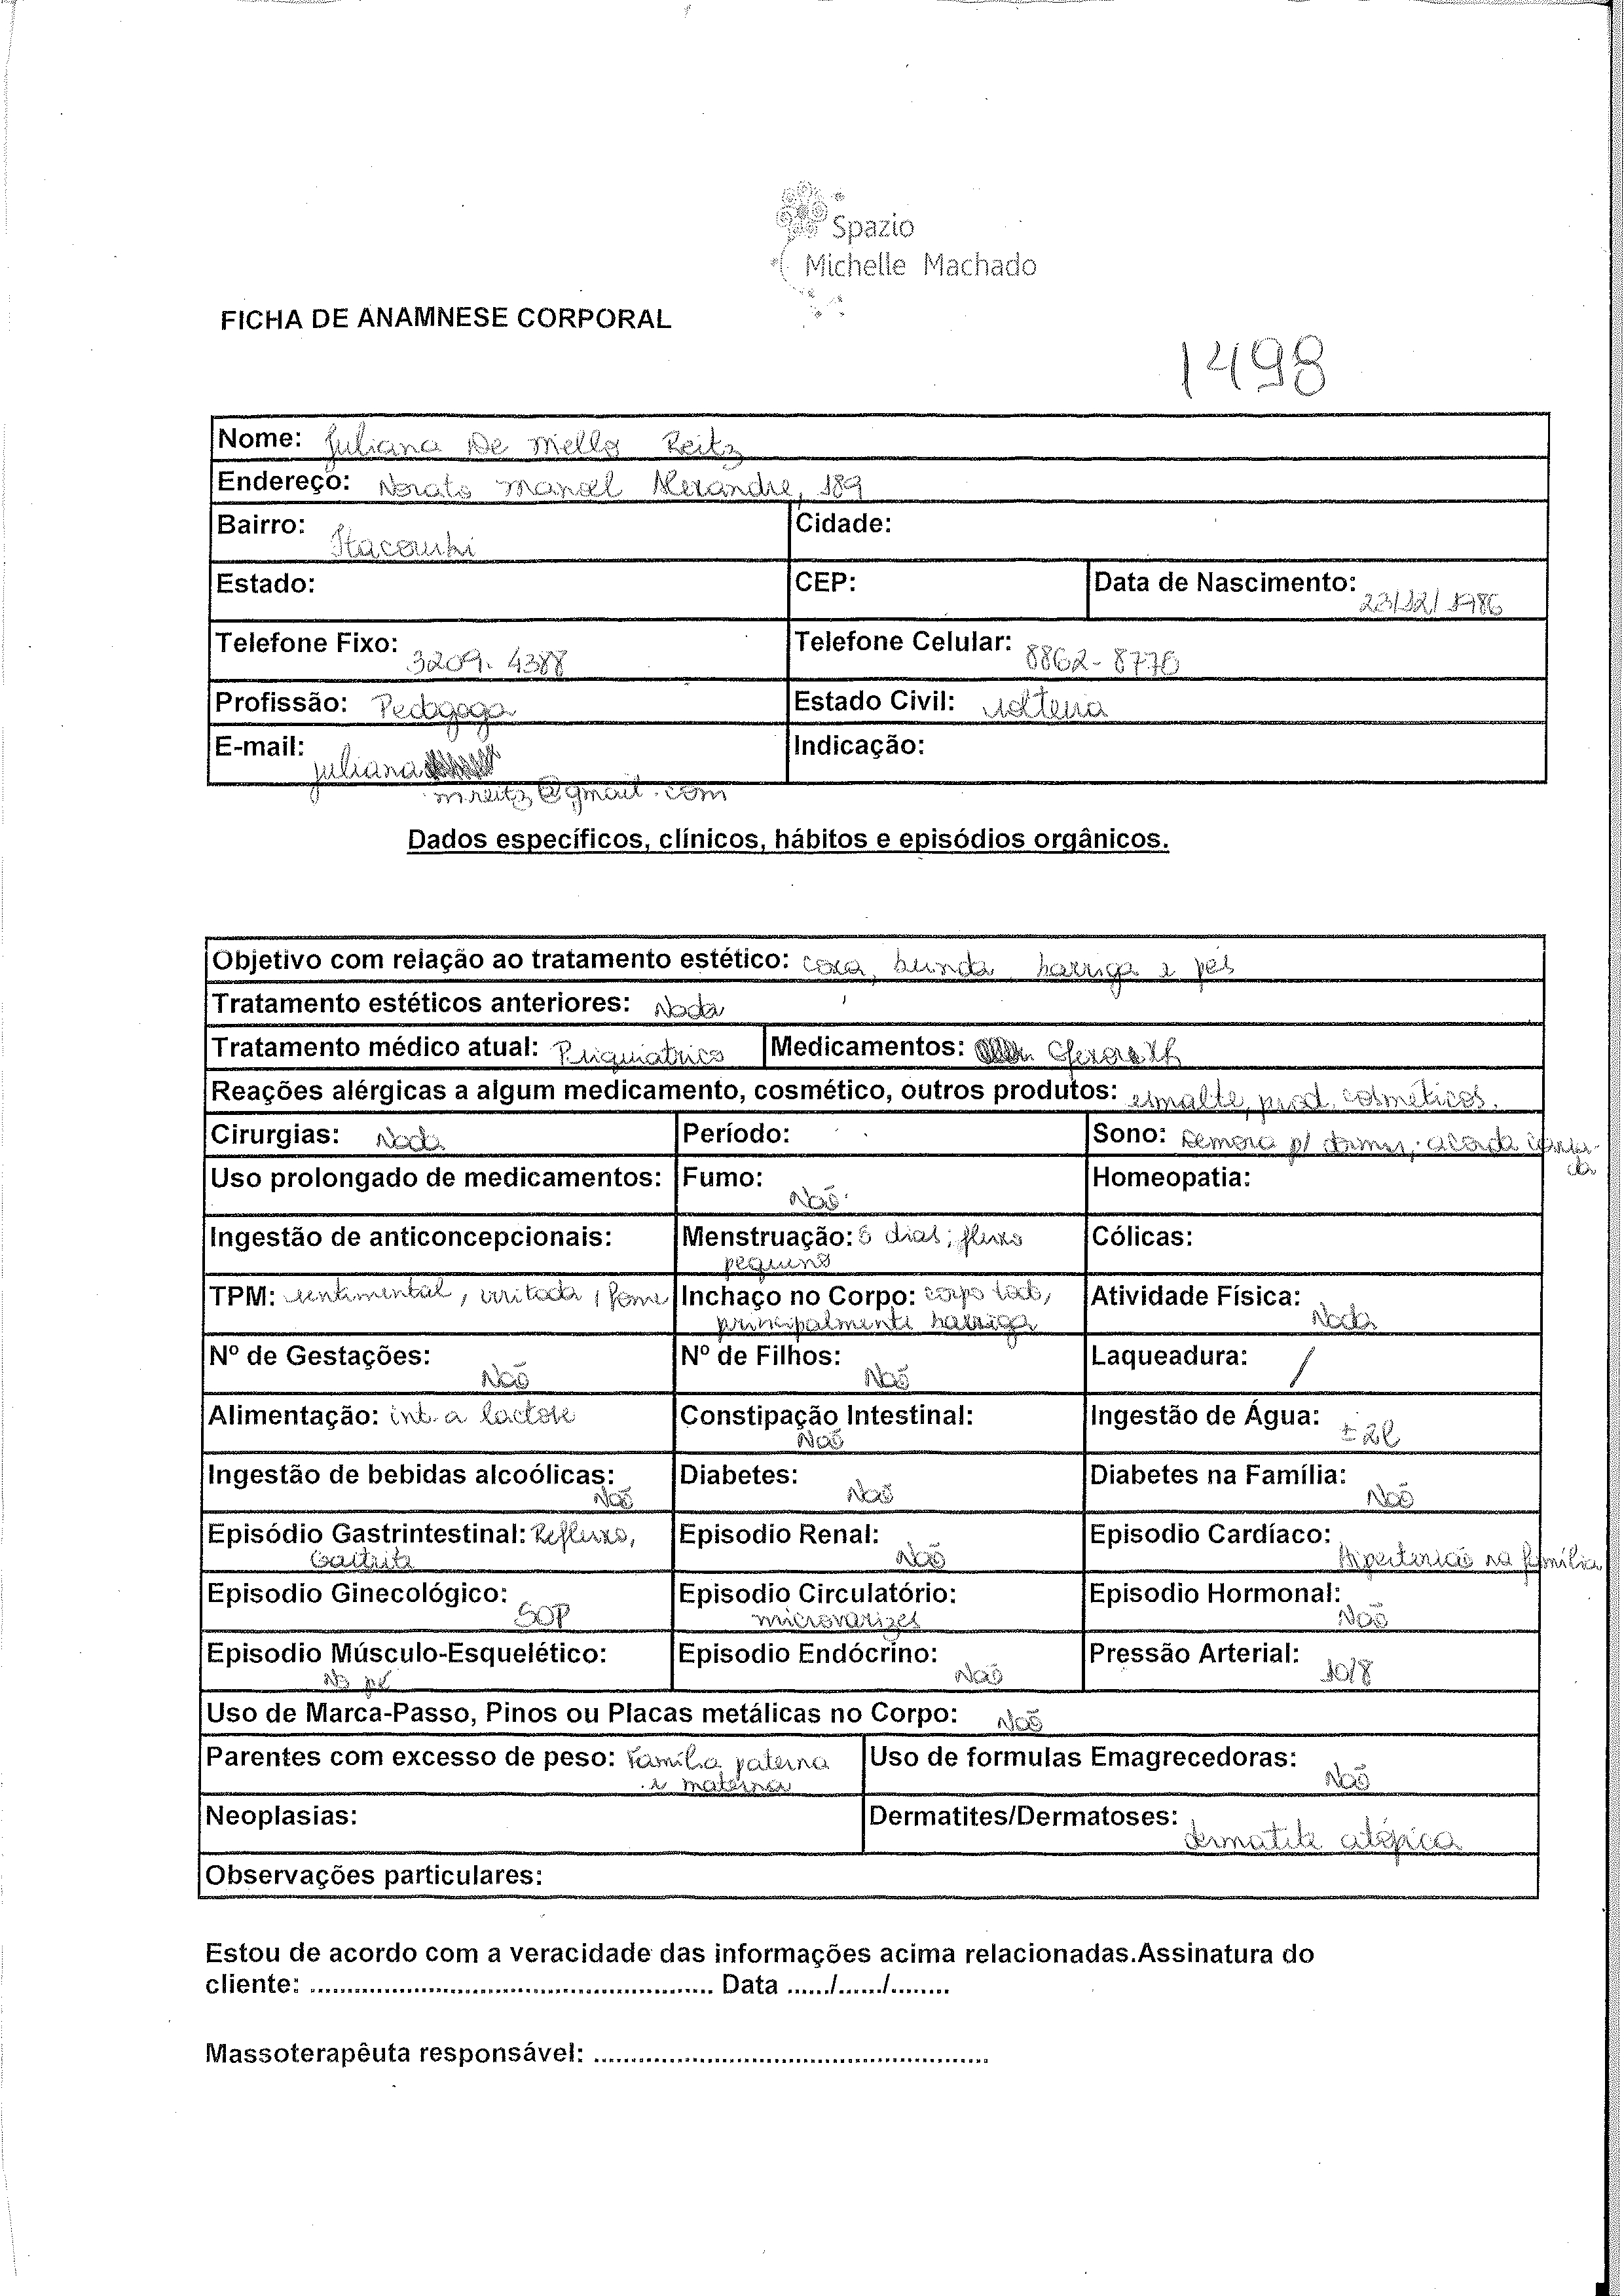 Spazio
Michelle Machado
FICHA DE ANAMNESE CORPORAL
1498
Nome: Juliana De Mello Reitz
Endereço: Norato Manoel Alexandre, 189
Bairro: Cidade:
Estado: CEP: Data de Nascimento: 23/12/1986
Telefone Fixo: 3209-4388 Telefone Celular: 8862-8776
Profissão: Pedagoga Estado Civil: solteira
E-mail: juliana Indicação:
mreitz@gmail.com
Dados específicos, clínicos, hábitos e episódios orgânicos.
Objetivo com relação ao tratamento estético: coxa, bunda barriga e pés
Tratamento estéticos anteriores: Nada
Tratamento médico atual: Psiquiatrico Medicamentos:
Reações alérgicas a algum medicamento, cosmético, outros produtos: esmalte, prod. cosméticos.
Cirurgias: Nada Período: Sono: Demora p/ dormir, acorda cansa-
da
Uso prolongado de medicamentos: Fumo: Não Homeopatia:
Ingestão de anticoncepcionais: Menstruação: 5 dias; fluxo Cólicas:
pequeno
TPM: sentimental, irritada, fome Inchaço no Corpo: corpo todo, Atividade Física: Nada
principalmente barriga
Nº de Gestações: Não Nº de Filhos: Não Laqueadura: /
Alimentação: int. a lactose Constipação Intestinal: Não Ingestão de Água: ± 2l
Ingestão de bebidas alcoólicas: Não Diabetes: Não Diabetes na Família: Não
Episódio Gastrintestinal: Refluxo, Episodio Renal: Não Episodio Cardíaco: Hipertensão na família
Gastrite
Episodio Ginecológico: SOP Episodio Circulatório: microvarizes Episodio Hormonal: Não
Episodio Músculo-Esquelético: No pé Episodio Endócrino: Não Pressão Arterial: 10/8
Uso de Marca-Passo, Pinos ou Placas metálicas no Corpo: Não
Parentes com excesso de peso: Família paterna Uso de formulas Emagrecedoras: Não
e materna
Neoplasias: Dermatites/Dermatoses: dermatite atópica
Observações particulares:
Estou de acordo com a veracidade das informações acima relacionadas.Assinatura do
cliente: .................................................. Data ....../....../........
Massoterapêuta responsável: ..................................................